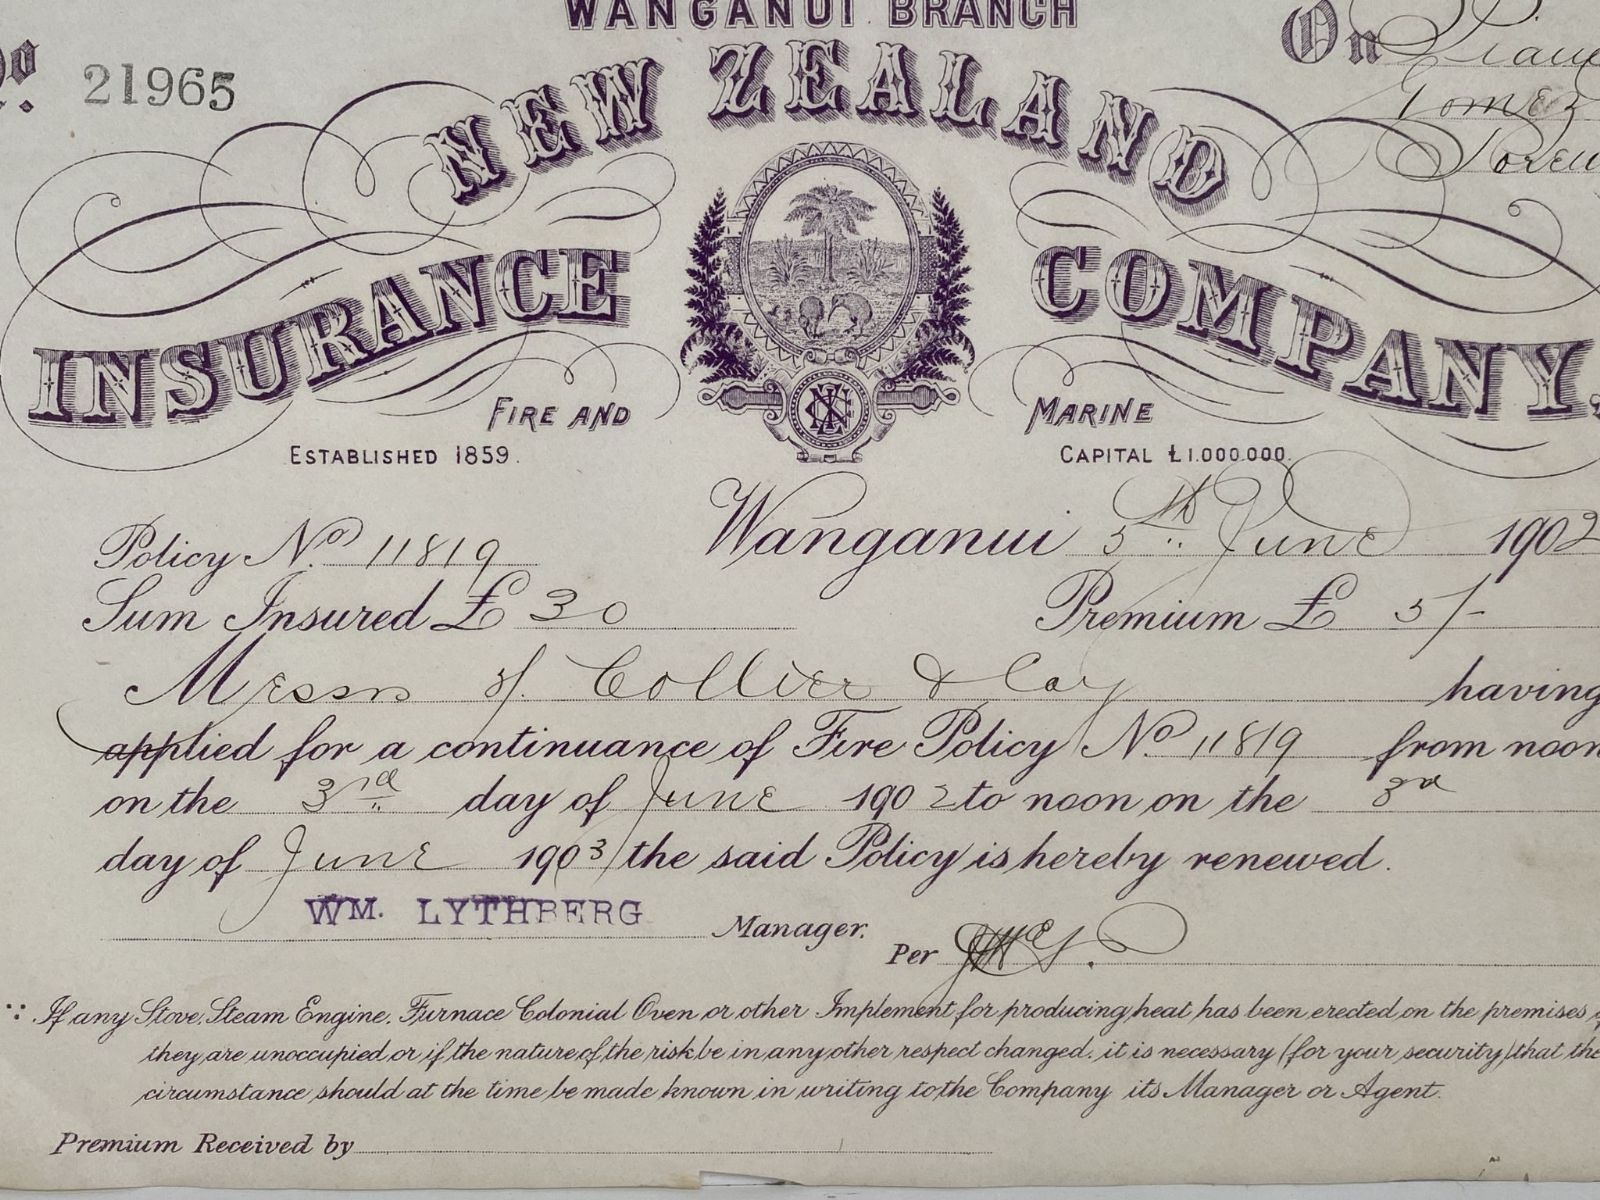 WANGANUI BRANCH
No. 21965
On
NEW ZEALAND
INSURANCE COMPANY,
FIRE AND MARINE
ESTABLISHED 1859. CAPITAL £1.000.000.
Wanganui 5th June 1902
Policy No. 11819
Sum Insured £ 30 Premium £ 5/-
Messrs H. Collier & Coy having
applied for a continuance of Fire Policy No 11819 from noon
on the 3rd day of June 1902 to noon on the 3rd
day of June 1903 the said Policy is hereby renewed.
WM. LYTHBERG Manager.
Per
If any Stove, Steam Engine, Furnace Colonial Oven or other Implement for producing heat has been erected on the premises
they are unoccupied or if the nature of the risk be in any other respect changed, it is necessary (for your security) that the
circumstance should at the time be made known in writing to the Company its Manager or Agent.
Premium Received by